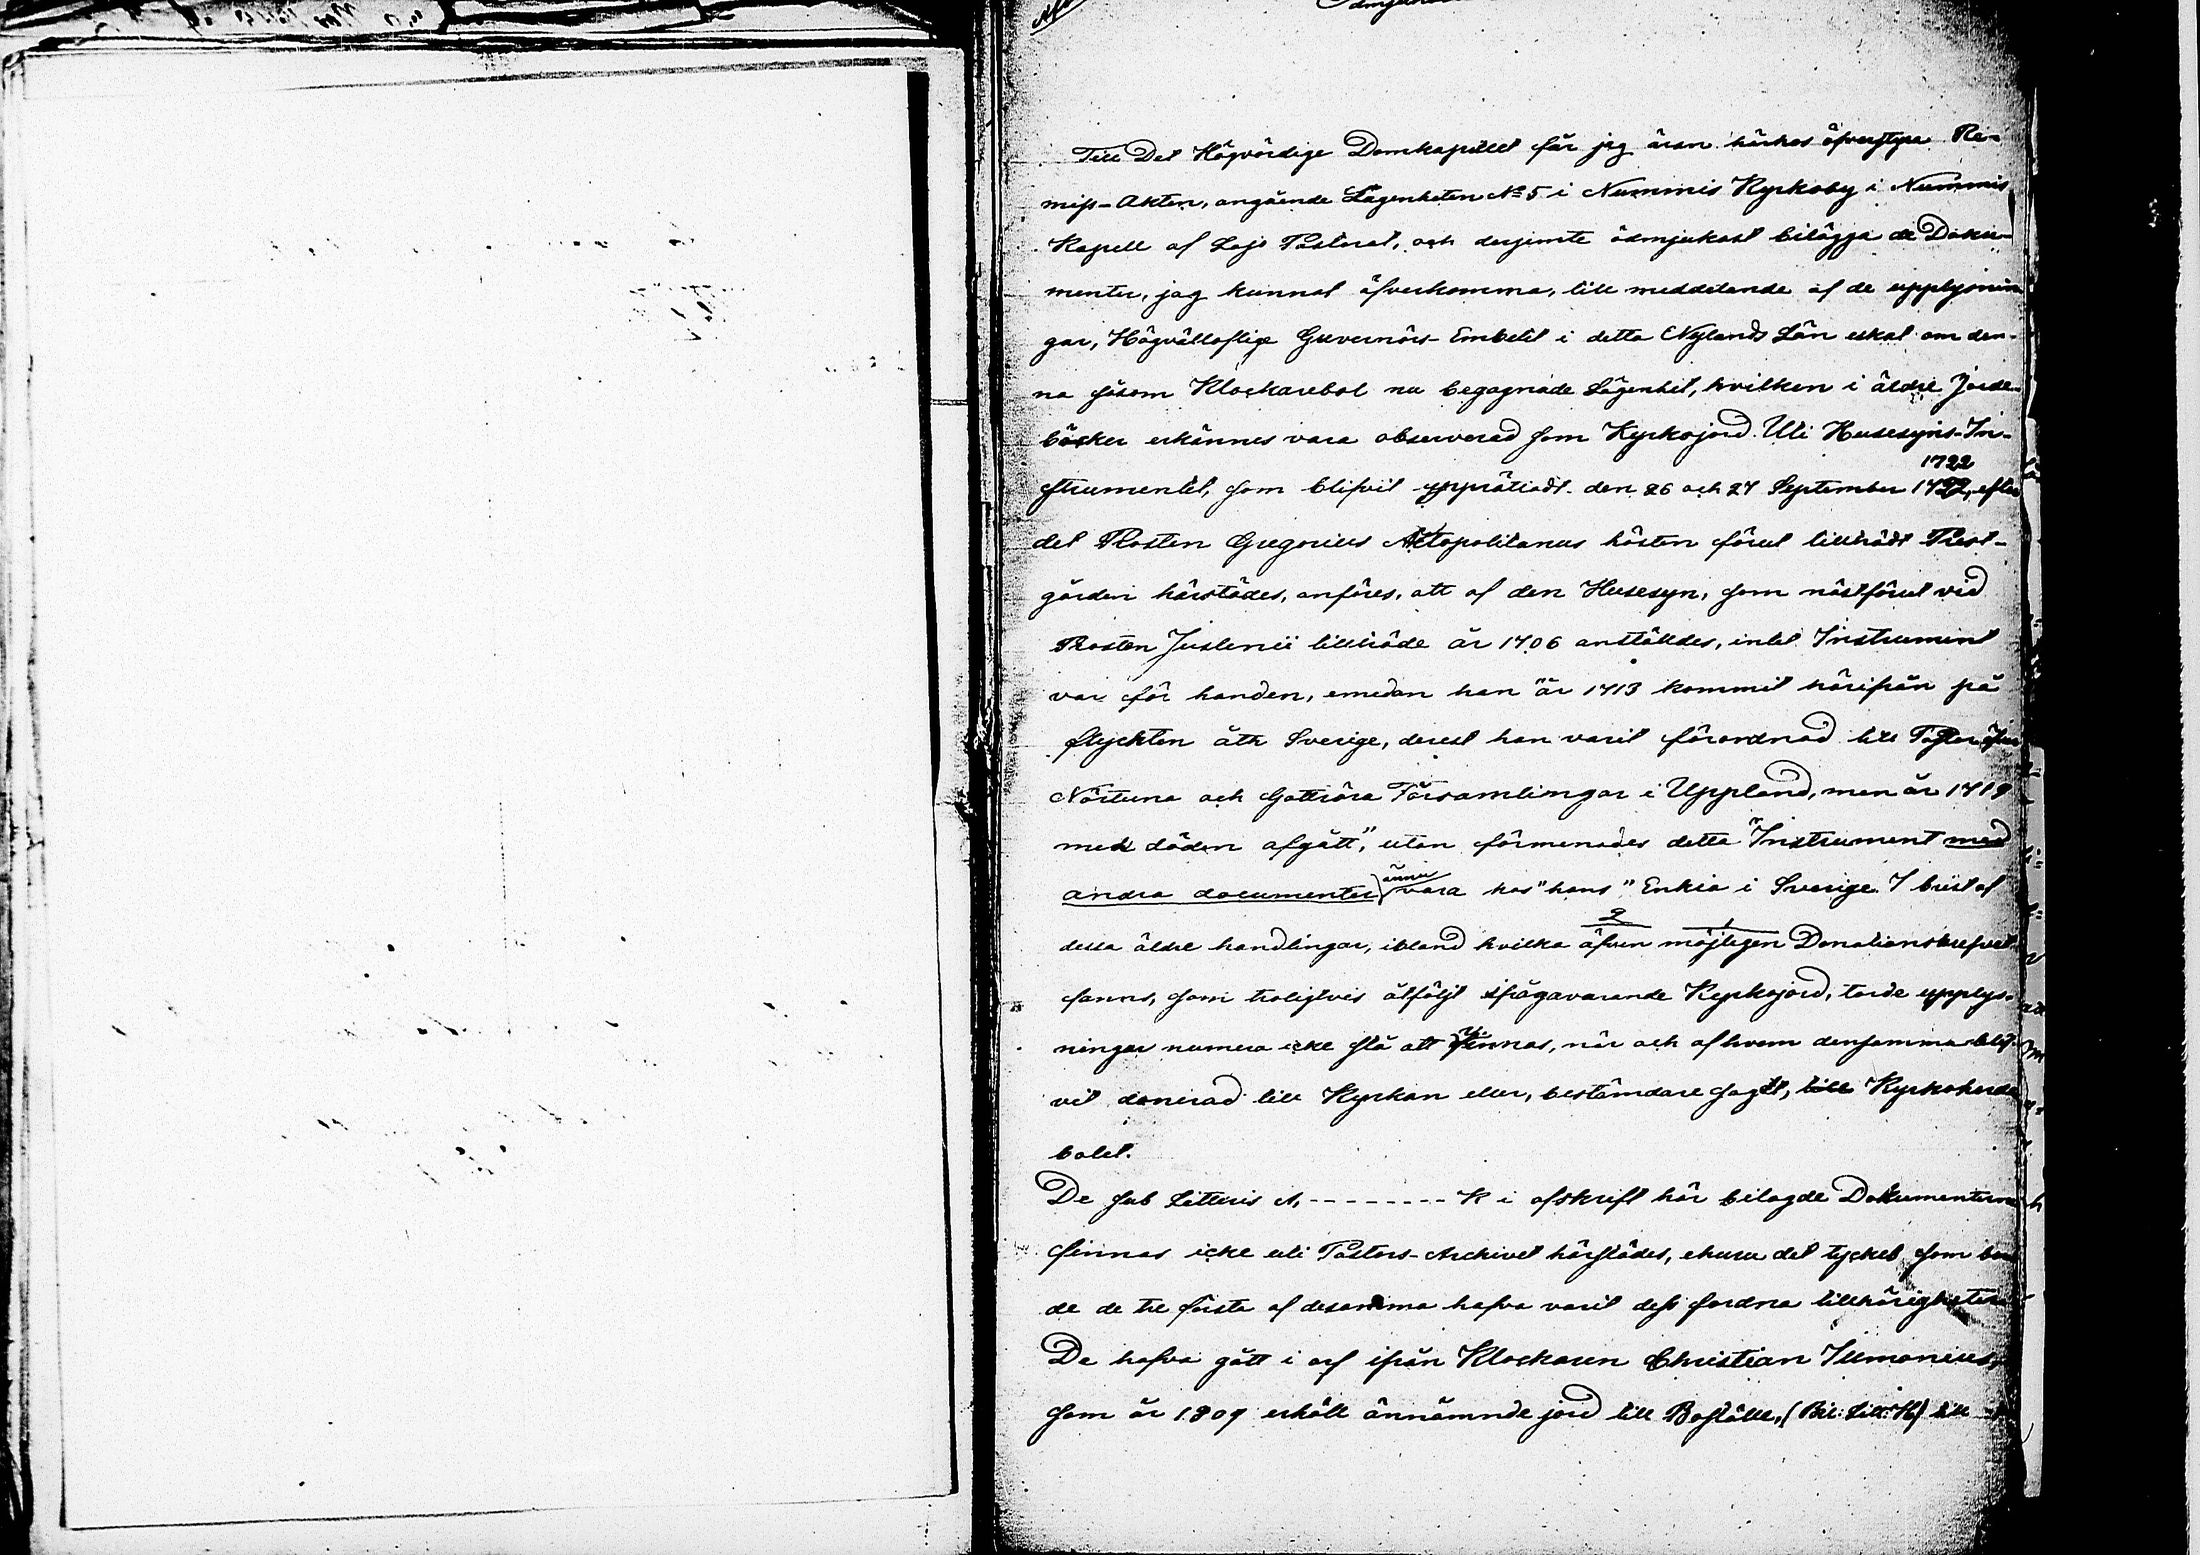 Till Det Högvördige Domkapitlet får jag äran härhos öfverstyra Re-
miss-Akten, angående Lägenheten No 5 i Nummis Kyrkoby i Nummis
Kapell af Lojo Pastorat, och derjemte ödmjukast bilägga de Doku-
menter, jag kunnat öfverkomma, till meddelande af de upplysnin
gar, Högvälloflige Guvernörs-Embetet i detta Nylands Län äskat om den-
na såsom Klockarebol nu begagnade Lägenhet, hvilken i äldre Jorde-
böcker erkännes vara observerad som Kyrkojord. Uti Husesyns-In-
1722
strumentet, som blifvit upprättadt den 26 och 27 September 1722, efter
det Prosten Gregorius Aletopolitanus hösten förut tillträdt Prest-
gården härstädes, anföres, att af den Husesyn, som nästförut vid
Prosten Juslenii tillträde år 1706 anställdes, intet Instrument
var för handen, emedan han "år 1713 kommit härifrån på
flyckten åth Sverige, derest han varit förordnad till Pastor öfver
Närtuna och Gottröra Församlingar i Uppland, men år 1719
med döden afgått", utan förmenades detta "Instrument med
andra documenter ännu vara hos "hans" Enkia i Sverige. I brist af
2 1
dessa äldre handlingar, ibland hvilka äfven möjligen Donationsbrefvet
fanns, som troligtvis åtföljt ifrågavarande Kyrkojord, torde upplys-
ningar numera icke stå att finnas, när och af hvem densamma blif-
vit donerad till Kyrkan eller, bestämdare sagdt, till Kyrkoherde
bolet.
De sub Litteris A, - - - - - - - - K i afskrift här bilagde Dokumenterne
finnas icke uti Pastors-Archivet härstädes, ehuru det tyckes som bor
de de tre första af desamma hafva varit dess fordna tillhörigheter
De hafva gått i arf ifrån Klockaren Christian Ilmonius,
som år 1809 erhöll ännämnde jord till Boställe, (Bil. Litt. H) till